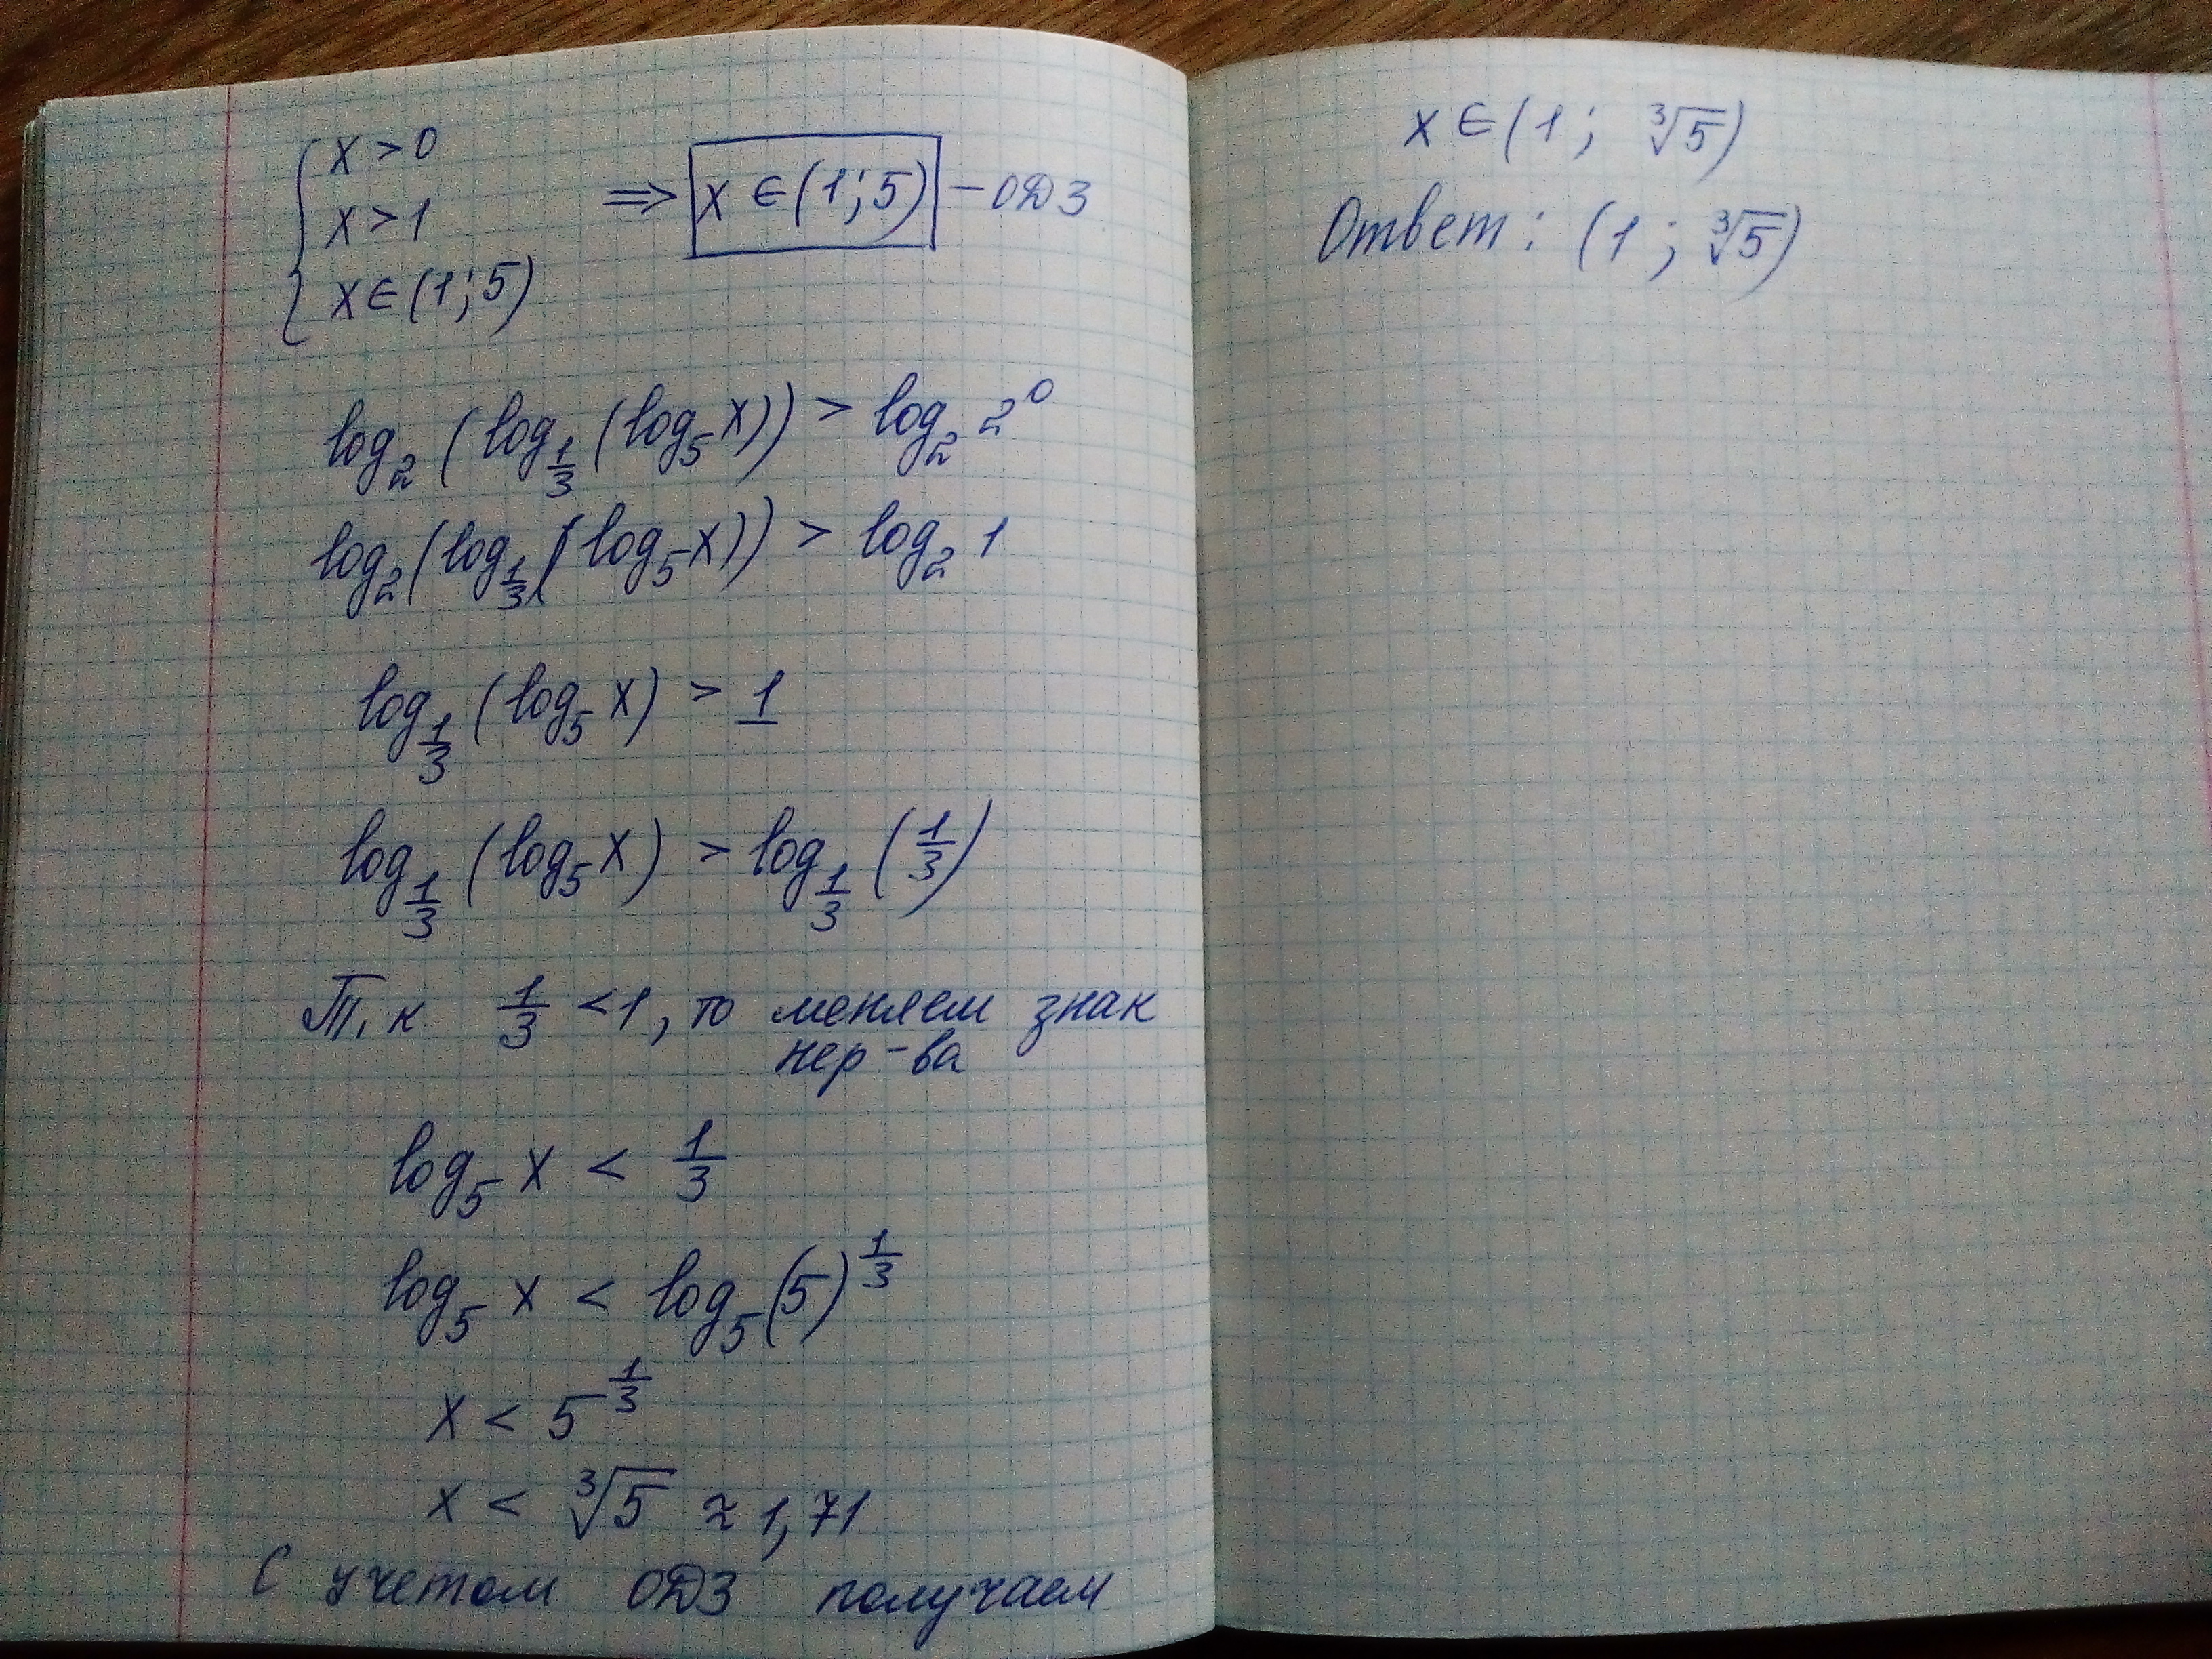 { x > 0
x > 1 ⇒ x ∈ (1; 5) – ОДЗ
x ∈ (1; 5)
log₂ (log_{1/3} (log₅ x)) > log₂ 2⁰
log₂ (log_{1/3} (log₅ x)) > log₂ 1
log_{1/3} (log₅ x) > 1
log_{1/3} (log₅ x) > log_{1/3} (1/3)
Т.к 1/3 < 1, то меняем знак
нер-ва
log₅ x < 1/3
log₅ x < log₅ (5)^{1/3}
x < 5^{1/3}
x < ∛5 ≈ 1,71
С учетом ОДЗ получаем
x ∈ (1; ∛5)
Ответ: (1; ∛5)